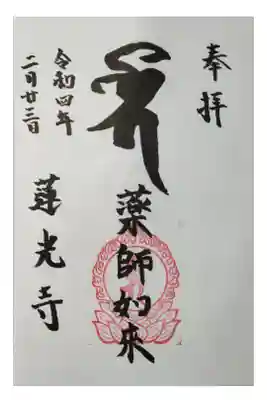 奉拝
薬師如来
令和四年
二月廿三日
蓮光寺